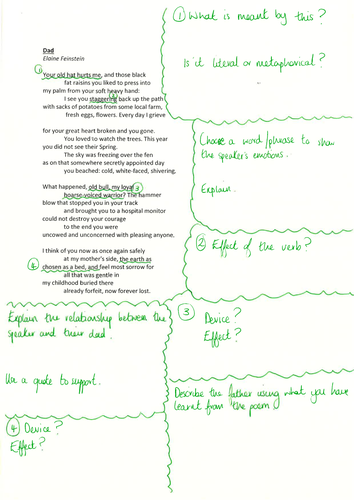 Dad
Elaine Feinstein
① Your old hat hurts me, and those black
fat raisins you liked to press into
my palm from your soft heavy hand:
② I see you staggering back up the path
with sacks of potatoes from some local farm,
fresh eggs, flowers. Every day I grieve
for your great heart broken and you gone.
You loved to watch the trees. This year
you did not see their Spring.
The sky was freezing over the fen
as on that somewhere secretly appointed day
you beached: cold, white-faced, shivering.
What happened, old bull, my loyal ③
hoarse-voiced warrior? The hammer
blow that stopped you in your track
and brought you to a hospital monitor
could not destroy your courage
to the end you were
uncowed and unconcerned with pleasing anyone.
I think of you now as once again safely
at my mother's side, the earth as
④ chosen as a bed, and feel most sorrow for
all that was gentle in
my childhood buried there
already forfeit, now forever lost.
① What is meant by this?
Is it literal or metaphorical?
Choose a word/phrase to show
the speaker's emotions.
Explain.
② Effect of the verb?
Explain the relationship between the
speaker and their dad.
Use a quote to support.
③ Device?
Effect?
Describe the father using what you have
learnt from the poem
④ Device?
Effect?